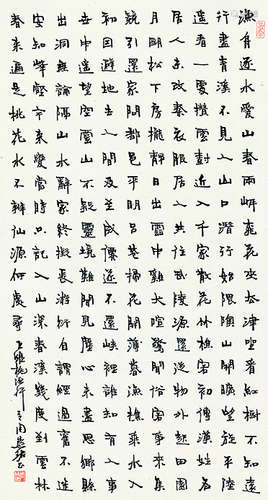 漁舟逐水愛山春兩岸桃花夾去津坐看紅樹不知遠
行盡青溪不見人山口潛行始隈隩山開曠望旋平陸
遙看一處攢雲樹近入千家散花竹樵客初傳漢姓名
居人未改秦衣服居人共住武陵源還從物外起田園
月明松下房櫳靜日出雲中雞犬喧驚聞俗客爭來集
競引還家問都邑平明閭巷掃花開薄暮漁樵乘水入
初因避地去人間及至成仙遂不還峽裏誰知有人事
世中遙望空雲山不疑靈境難聞見塵心未盡思鄉縣
出洞無論隔山水辭家終擬長游衍自謂經過舊不迷
安知峰壑今來變當時只記入山深青溪幾度到雲林
春來遍是桃花水不辨仙源何處尋
王維桃源行